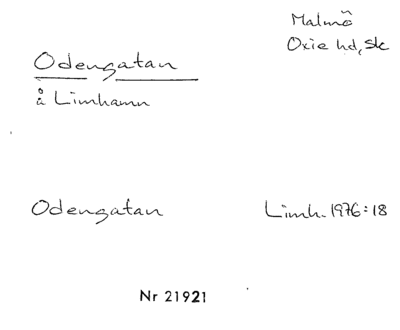 Malmö
Oxie hd, Sk
Odengatan
å Limhamn
Odengatan
Limh. 1976:18
Nr 21921